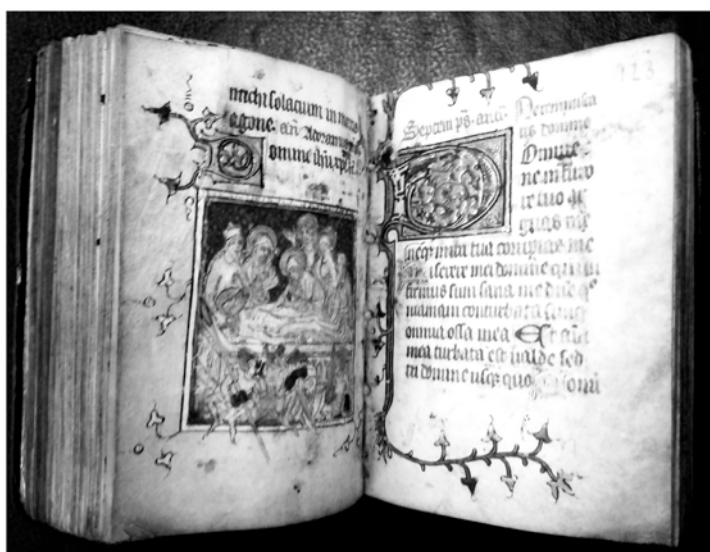 michi solacium in mortis
agone. añ Adoramus
omine ihū xp̄e
123
Septem ps. añ. Ne reminisca
ris domine
Domine
ne in furo
re tuo ar
guas me
neq; in ira tua corripias me
iserere mei domine qm̄ in
firmus sum sana me dñe qō
niam conturbata sunt
omnia ossa mea Et aīa
mea turbata est ualde sed
tu domine usq; quo